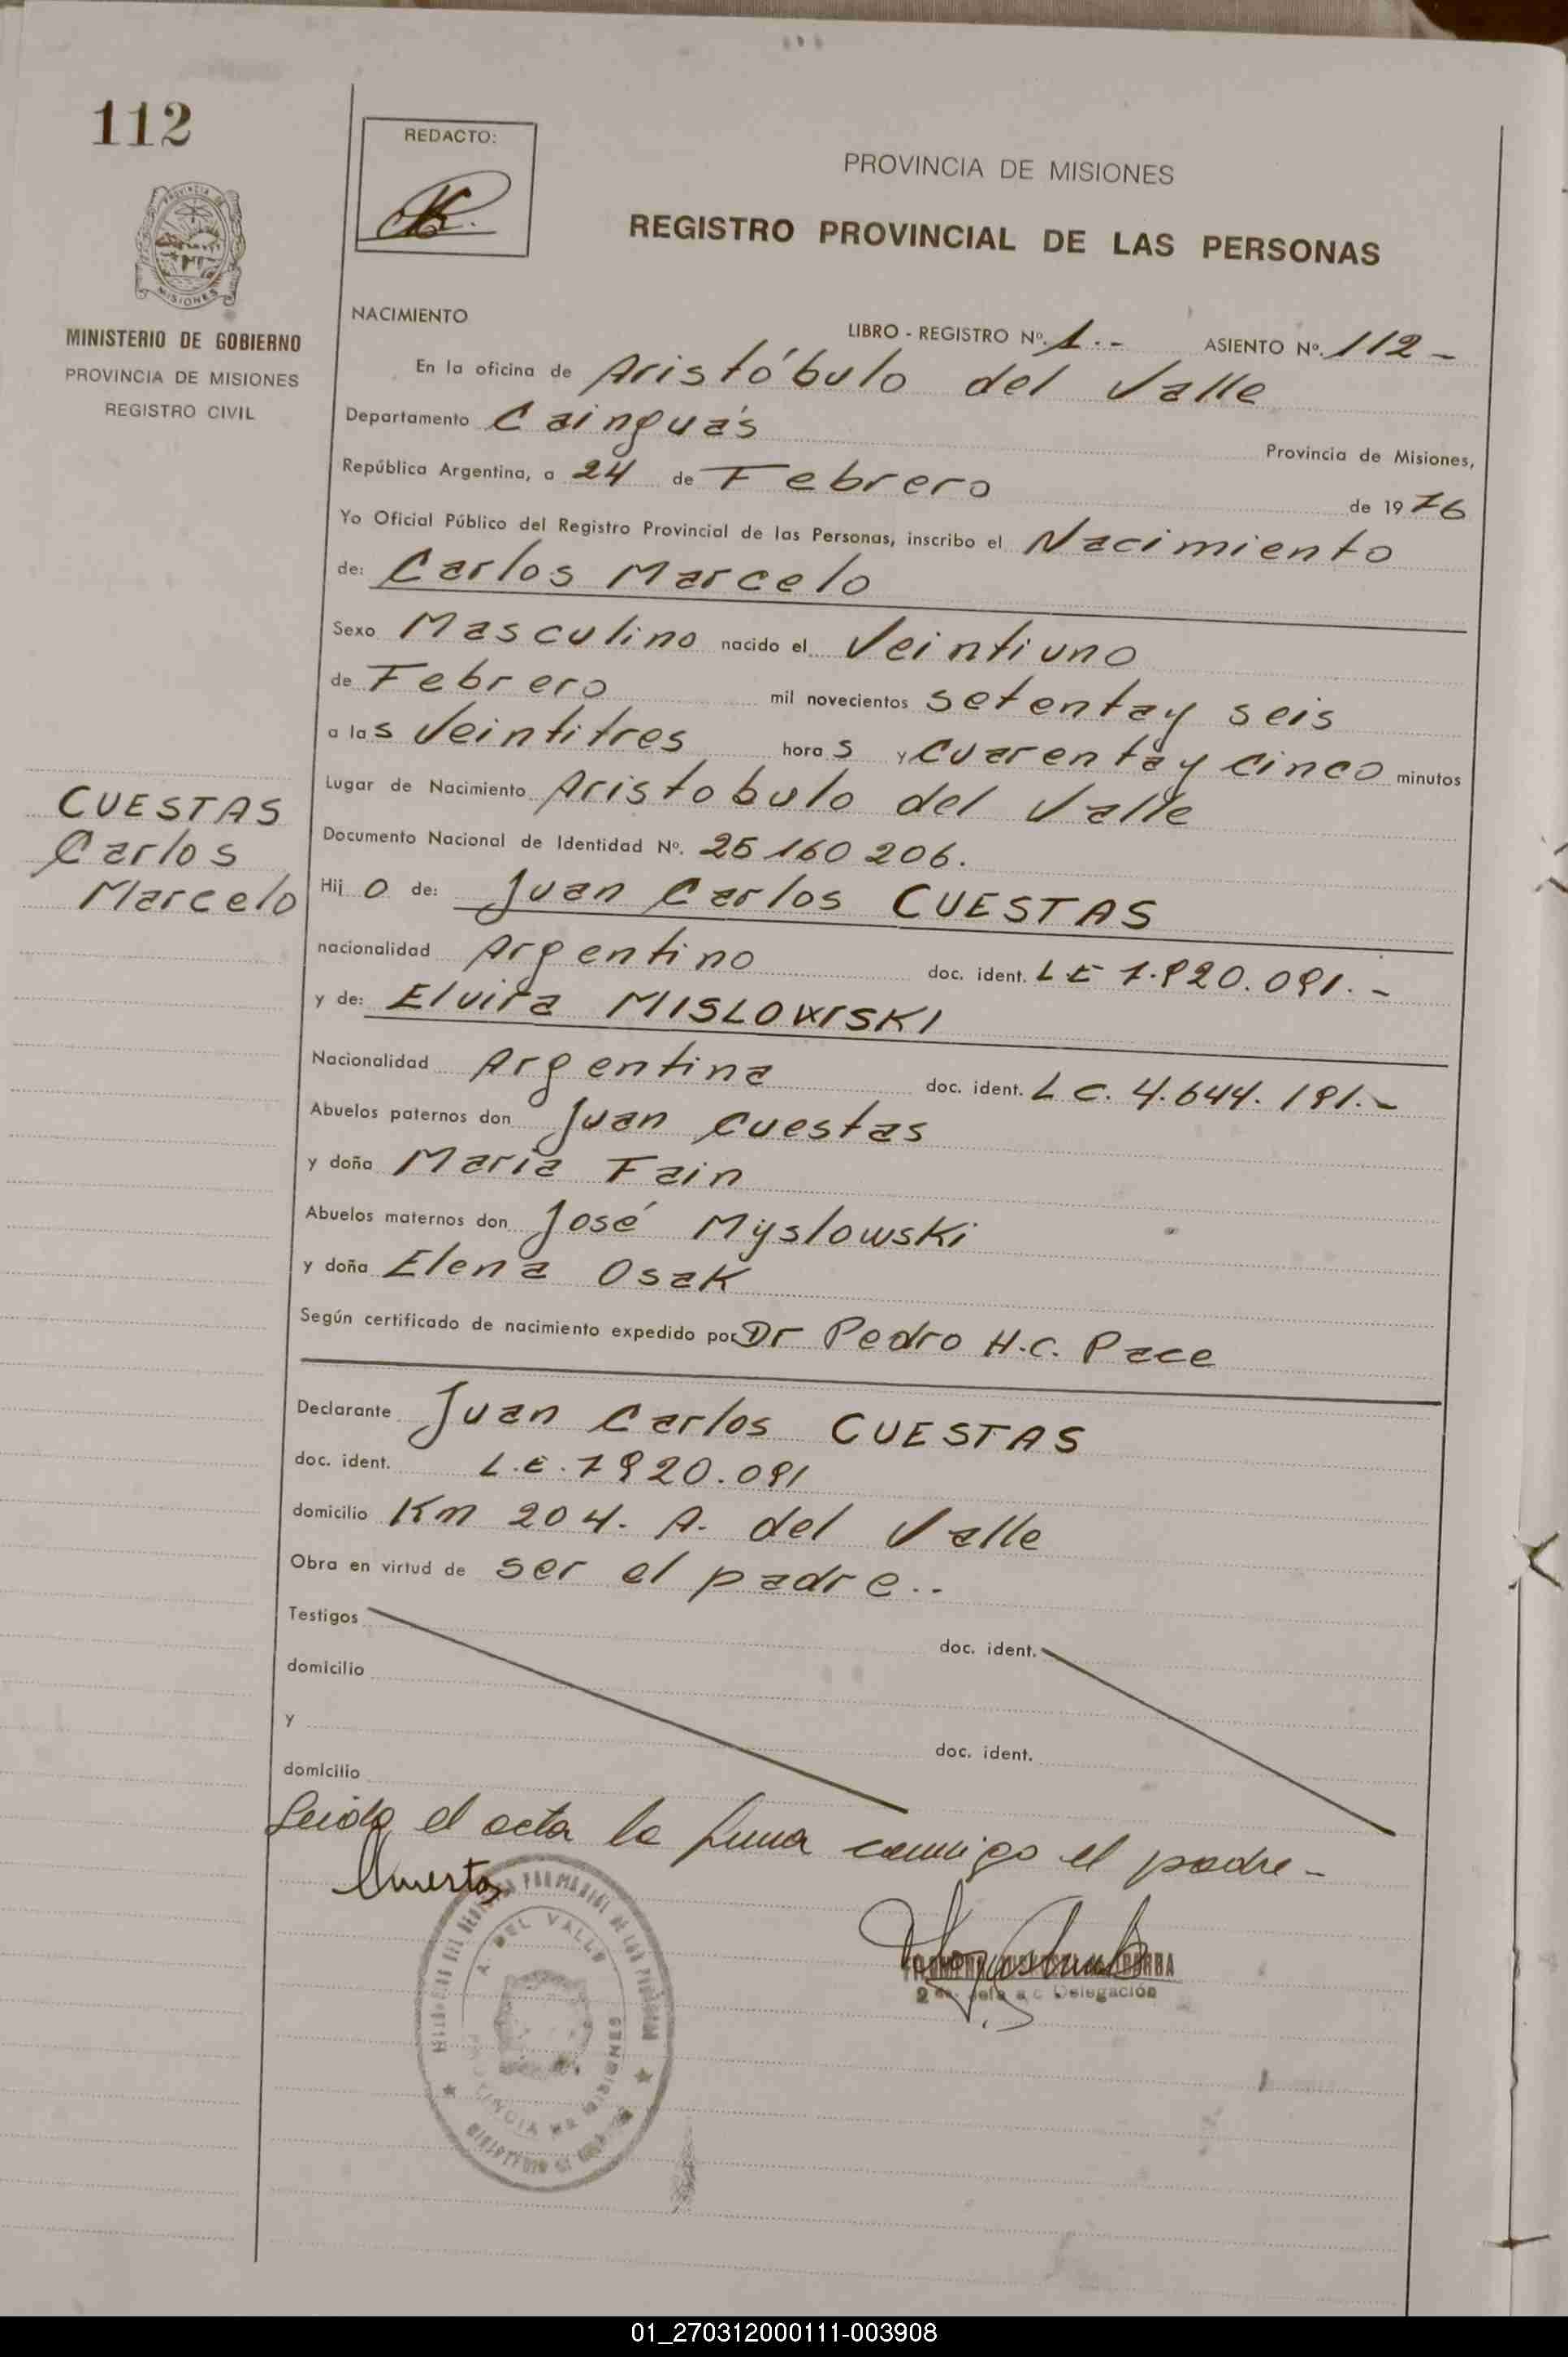 112
REDACTO:
PROVINCIA DE MISIONES
REGISTRO PROVINCIAL DE LAS PERSONAS
MISIONES
MINISTERIO DE GOBIERNO
PROVINCIA DE MISIONES
REGISTRO CIVIL
NACIMIENTO
LIBRO - REGISTRO Nº. 1.- ASIENTO Nº. 112-
En la oficina de Aristóbulo del Valle
Departamento Cainguás Provincia de Misiones,
República Argentina, a 24 de Febrero de 1976
Yo Oficial Público del Registro Provincial de las Personas, inscribo el Nacimiento
de: Carlos Marcelo
Sexo Masculino nacido el Veintiuno
de Febrero mil novecientos setentay seis
a las Veintitres horas y cuarentay cinco minutos
Lugar de Nacimiento Aristobulo del Valle
CUESTAS
Carlos
Marcelo
Documento Nacional de Identidad Nº. 25 160 206.
Hijo de: Juan Carlos CUESTAS
nacionalidad Argentino doc. ident. LE 7.920.091.-
y de: Elvira MISLOWSKI
Nacionalidad Argentina doc. ident. LC. 4.644.191.-
Abuelos paternos don Juan Cuestas
y doña Maria Fain
Abuelos maternos don José Myslowski
y doña Elena Osak
Según certificado de nacimiento expedido por Dr Pedro H.C. Pace
Declarante Juan Carlos CUESTAS
doc. ident. L.E. 7920.091
domicilio Km 204. A. del Valle
Obra en virtud de ser el padre..
Testigos doc. ident.
domicilio
y doc. ident.
domicilio
Leida el acta la firma conmigo el padre-
A. DEL VALLE
PROVINCIA DE MISIONES
2 do. Jefe a c Delegación
01_270312000111-003908